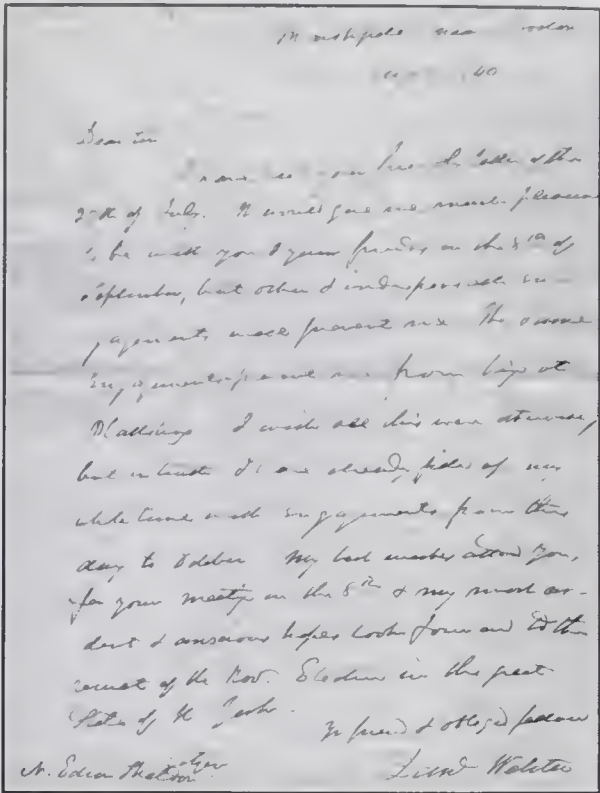 40
Dear Sir
I have your letter of the
of July. It would give me much pleasure
to be with you & your friends on the 8th of
September, but other & indispensable en-
gagements will prevent me The same
engagements prevent me from being at
I wish all this were otherwise,
but in truth I have already of my
whole time with engagements from this
day to October My best wishes attend you,
for your meeting on the 8th & my most ar-
dent & anxious hopes look forward to the
result of the Nov. Election in the great
State of N York.
Yr friend & obliged fellow
Danl Webster